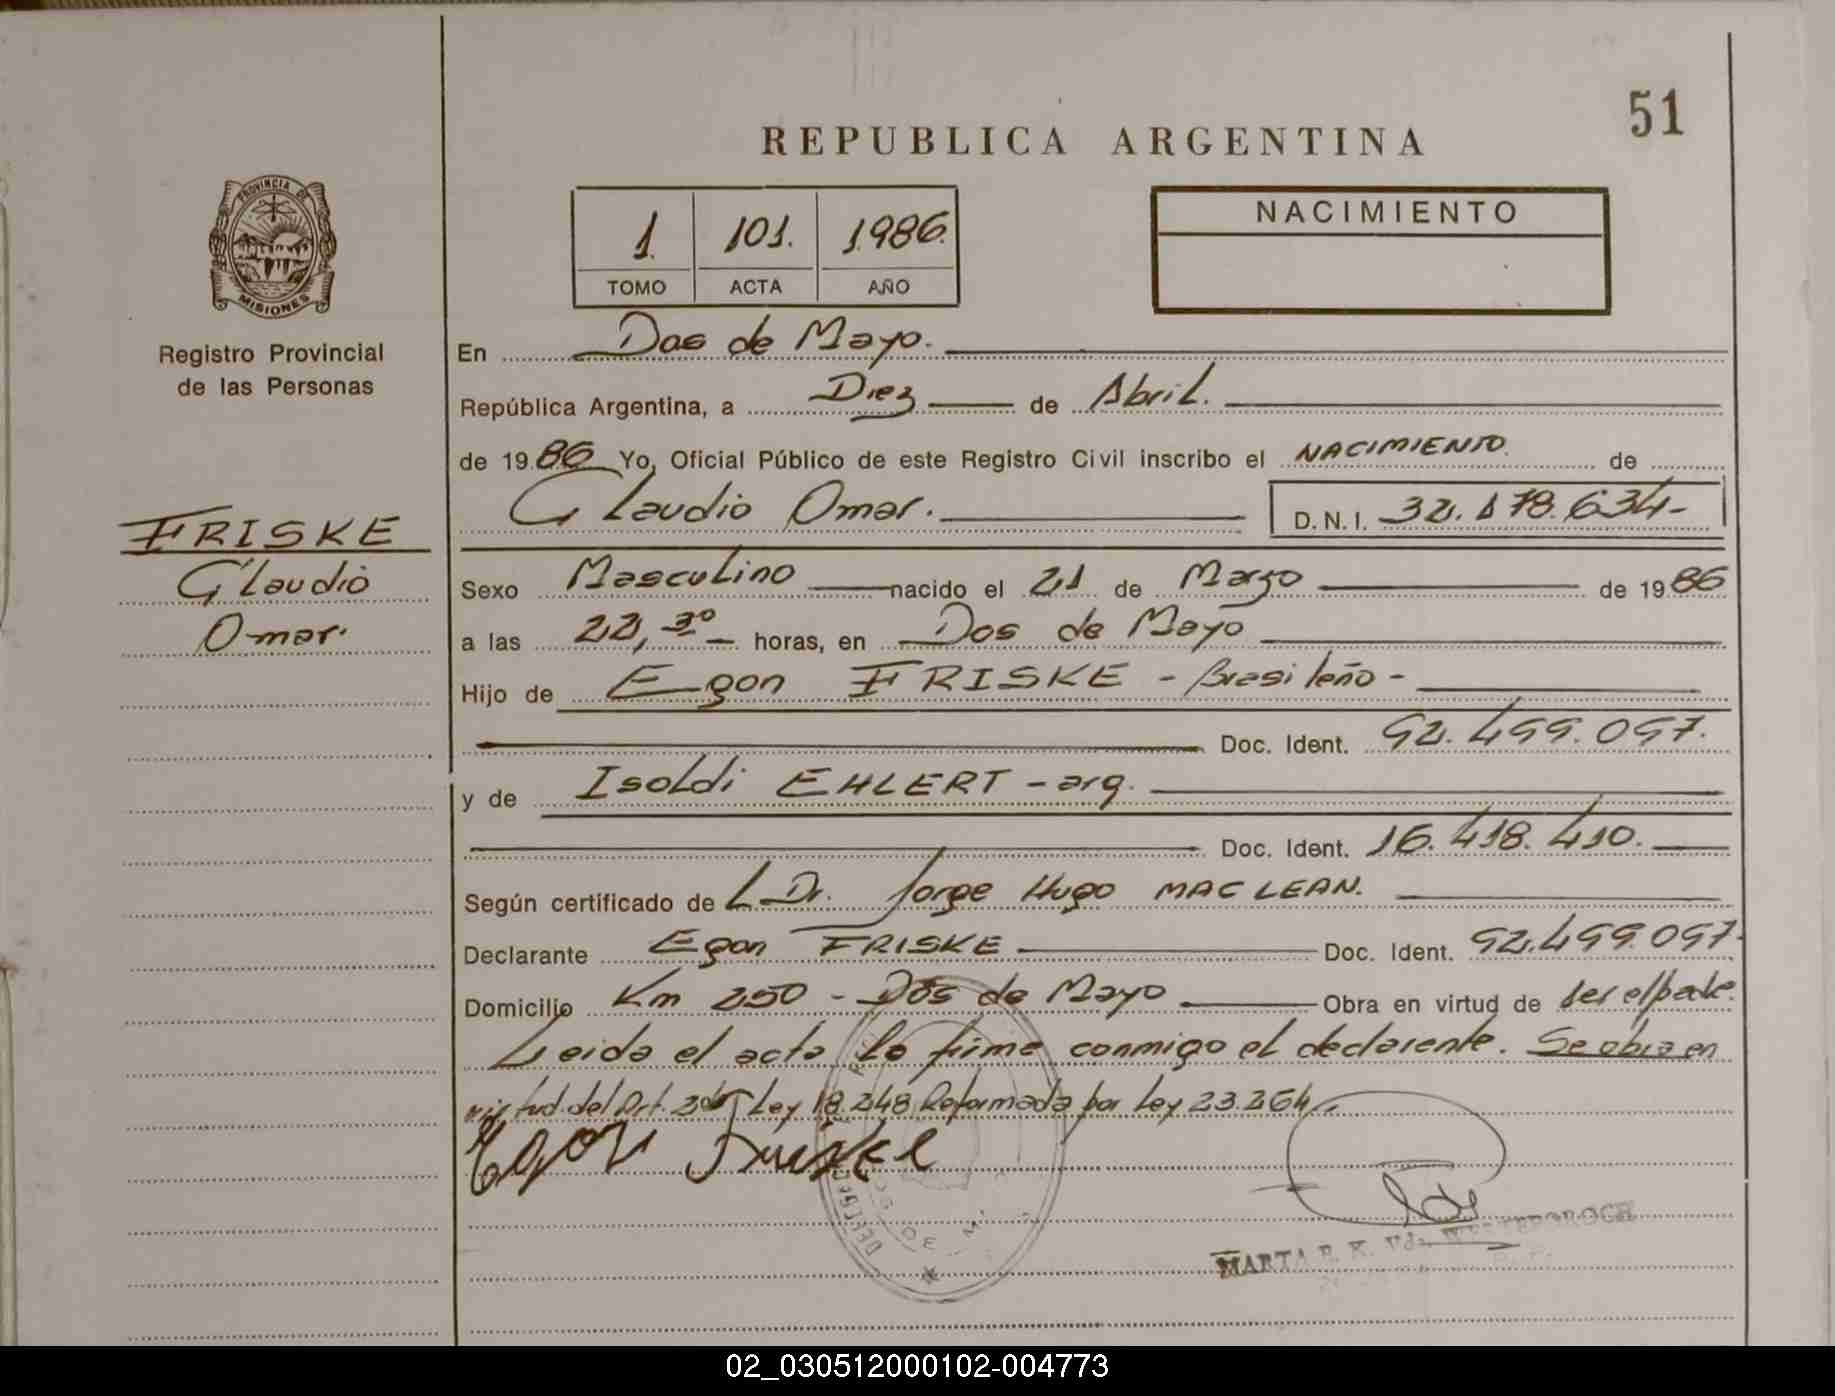 51
REPUBLICA ARGENTINA
PROVINCIA DE
MISIONES
Registro Provincial
de las Personas
1. 101. 1986.
TOMO ACTA AÑO
NACIMIENTO
FRISKE
Claudio
Omar.
En Dos de Mayo.
República Argentina, a Diez de Abril.
de 1986 Yo, Oficial Público de este Registro Civil inscribo el NACIMIENTO de
Claudio Omar. D.N.I. 32.178.634-
Sexo Masculino nacido el 21 de Marzo de 1986
a las 22,30 horas, en Dos de Mayo
Hijo de Egon FRISKE - Brasileño -
Doc. Ident. 92.499.097.
y de Isoldi EHLERT - arg.
Doc. Ident. 16.418.410.
Según certificado de L Dr. Jorge Hugo MAC LEAN.
Declarante Egon FRISKE Doc. Ident. 92.499.097.
Domicilio Km 250 - Dos de Mayo Obra en virtud de ser el padre.
Leida el acta la firma conmigo el declarante. Se obra en
virtud del Art. Ley 18.248 Reformada por Ley 23.264.
Egon Friske
MARTA E. K. Vda.
02_030512000102-004773